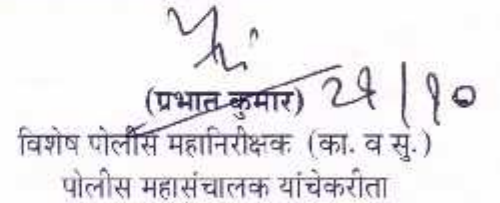 (प्रभात कुमार) २१/१०
विशेष पोलीस महानिरीक्षक (का. व सु.)
पोलीस महासंचालक यांचेकरीता